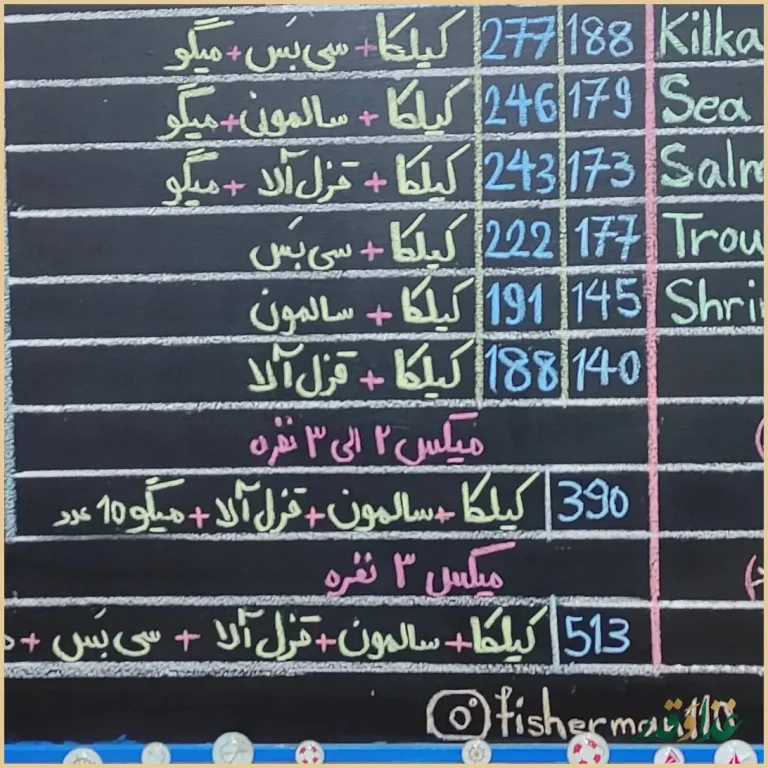 کیلکا + سی بَس + میگو 277 188 Kilka
کیلکا + سالمون + میگو 246 179 Sea
کیلکا + قزل آلا + میگو 243 173
کیلکا + سی بَس 222 177
کیلکا + سالمون 191 145
کیلکا + قزل آلا 188 140
میکس ۲ الی ۳ نفره
کیلکا + سالمون + قزل آلا + میگو 10 عدد 390
میکس ۳ نفره
کیلکا + سالمون + قزل آلا + سی بَس + 513